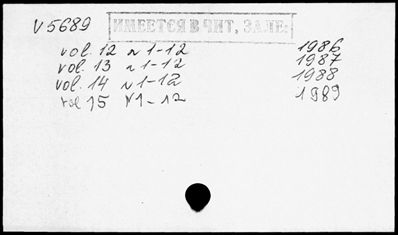 V5689
ИМЕЕТСЯ В ЧИТ. ЗАЛЕ:
vol. 12 N 1-12 1986
vol. 13 N 1-12 1987
vol. 14 N 1-12 1988
vol 15 N 1-12 1989